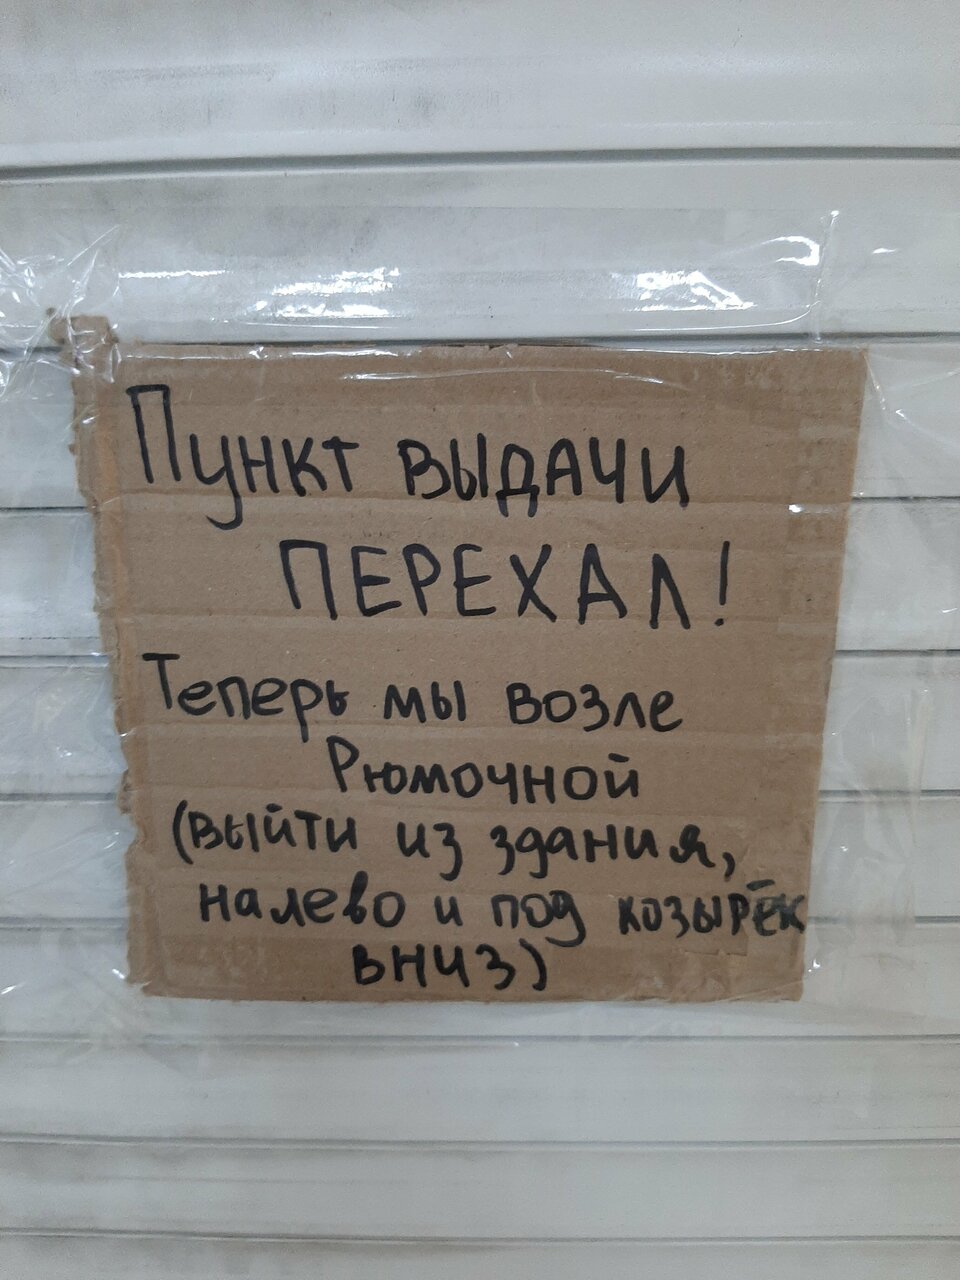 Пункт выдачи
ПЕРЕХАЛ!
Теперь мы возле
Рюмочной
(выйти из здания,
налево и под козырёк
вниз)